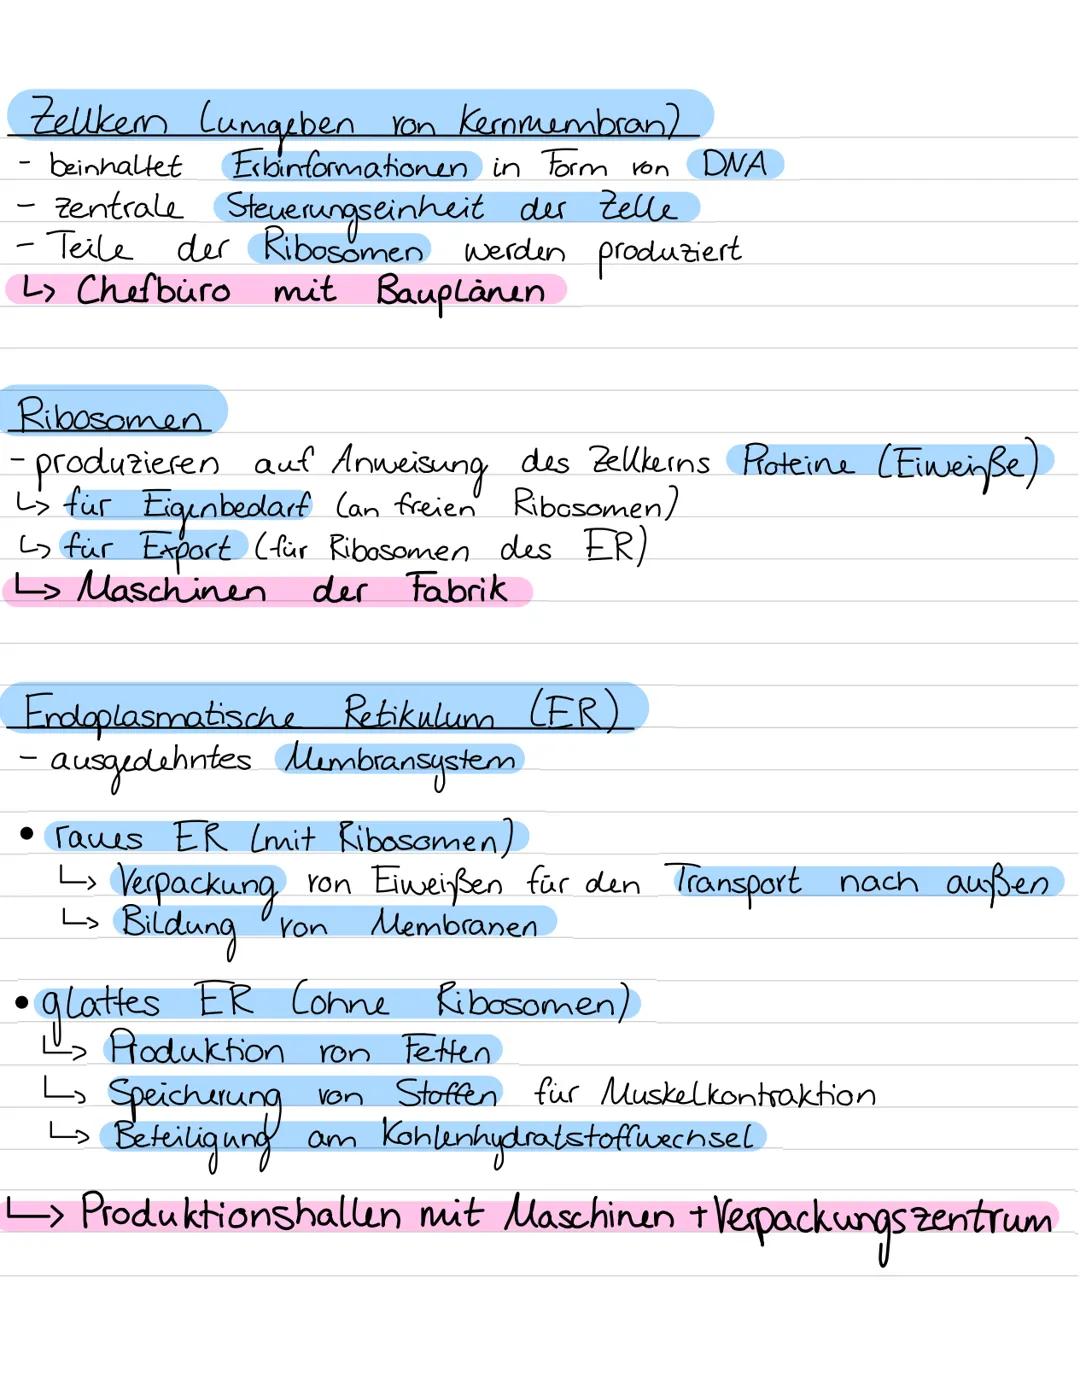 Zellkern (umgeben von Kernmembran)
- beinhaltet Erbinformationen in Form von DNA
- zentrale Steuerungseinheit der Zelle
- Teile der Ribosomen werden produziert
↳ Chefbüro mit Bauplänen
Ribosomen
- produzieren auf Anweisung des Zellkerns Proteine (Eiweiße)
↳ für Eigenbedarf (an freien Ribosomen)
↳ für Export (für Ribosomen des ER)
↳ Maschinen der Fabrik
Endoplasmatische Retikulum (ER)
- ausgedehntes Membransystem
• raues ER (mit Ribosomen)
↳ Verpackung von Eiweißen für den Transport nach außen
↳ Bildung von Membranen
• glattes ER (ohne Ribosomen)
↳ Produktion von Fetten
↳ Speicherung von Stoffen für Muskelkontraktion
↳ Beteiligung am Kohlenhydratstoffwechsel
↳ Produktionshallen mit Maschinen + Verpackungszentrum